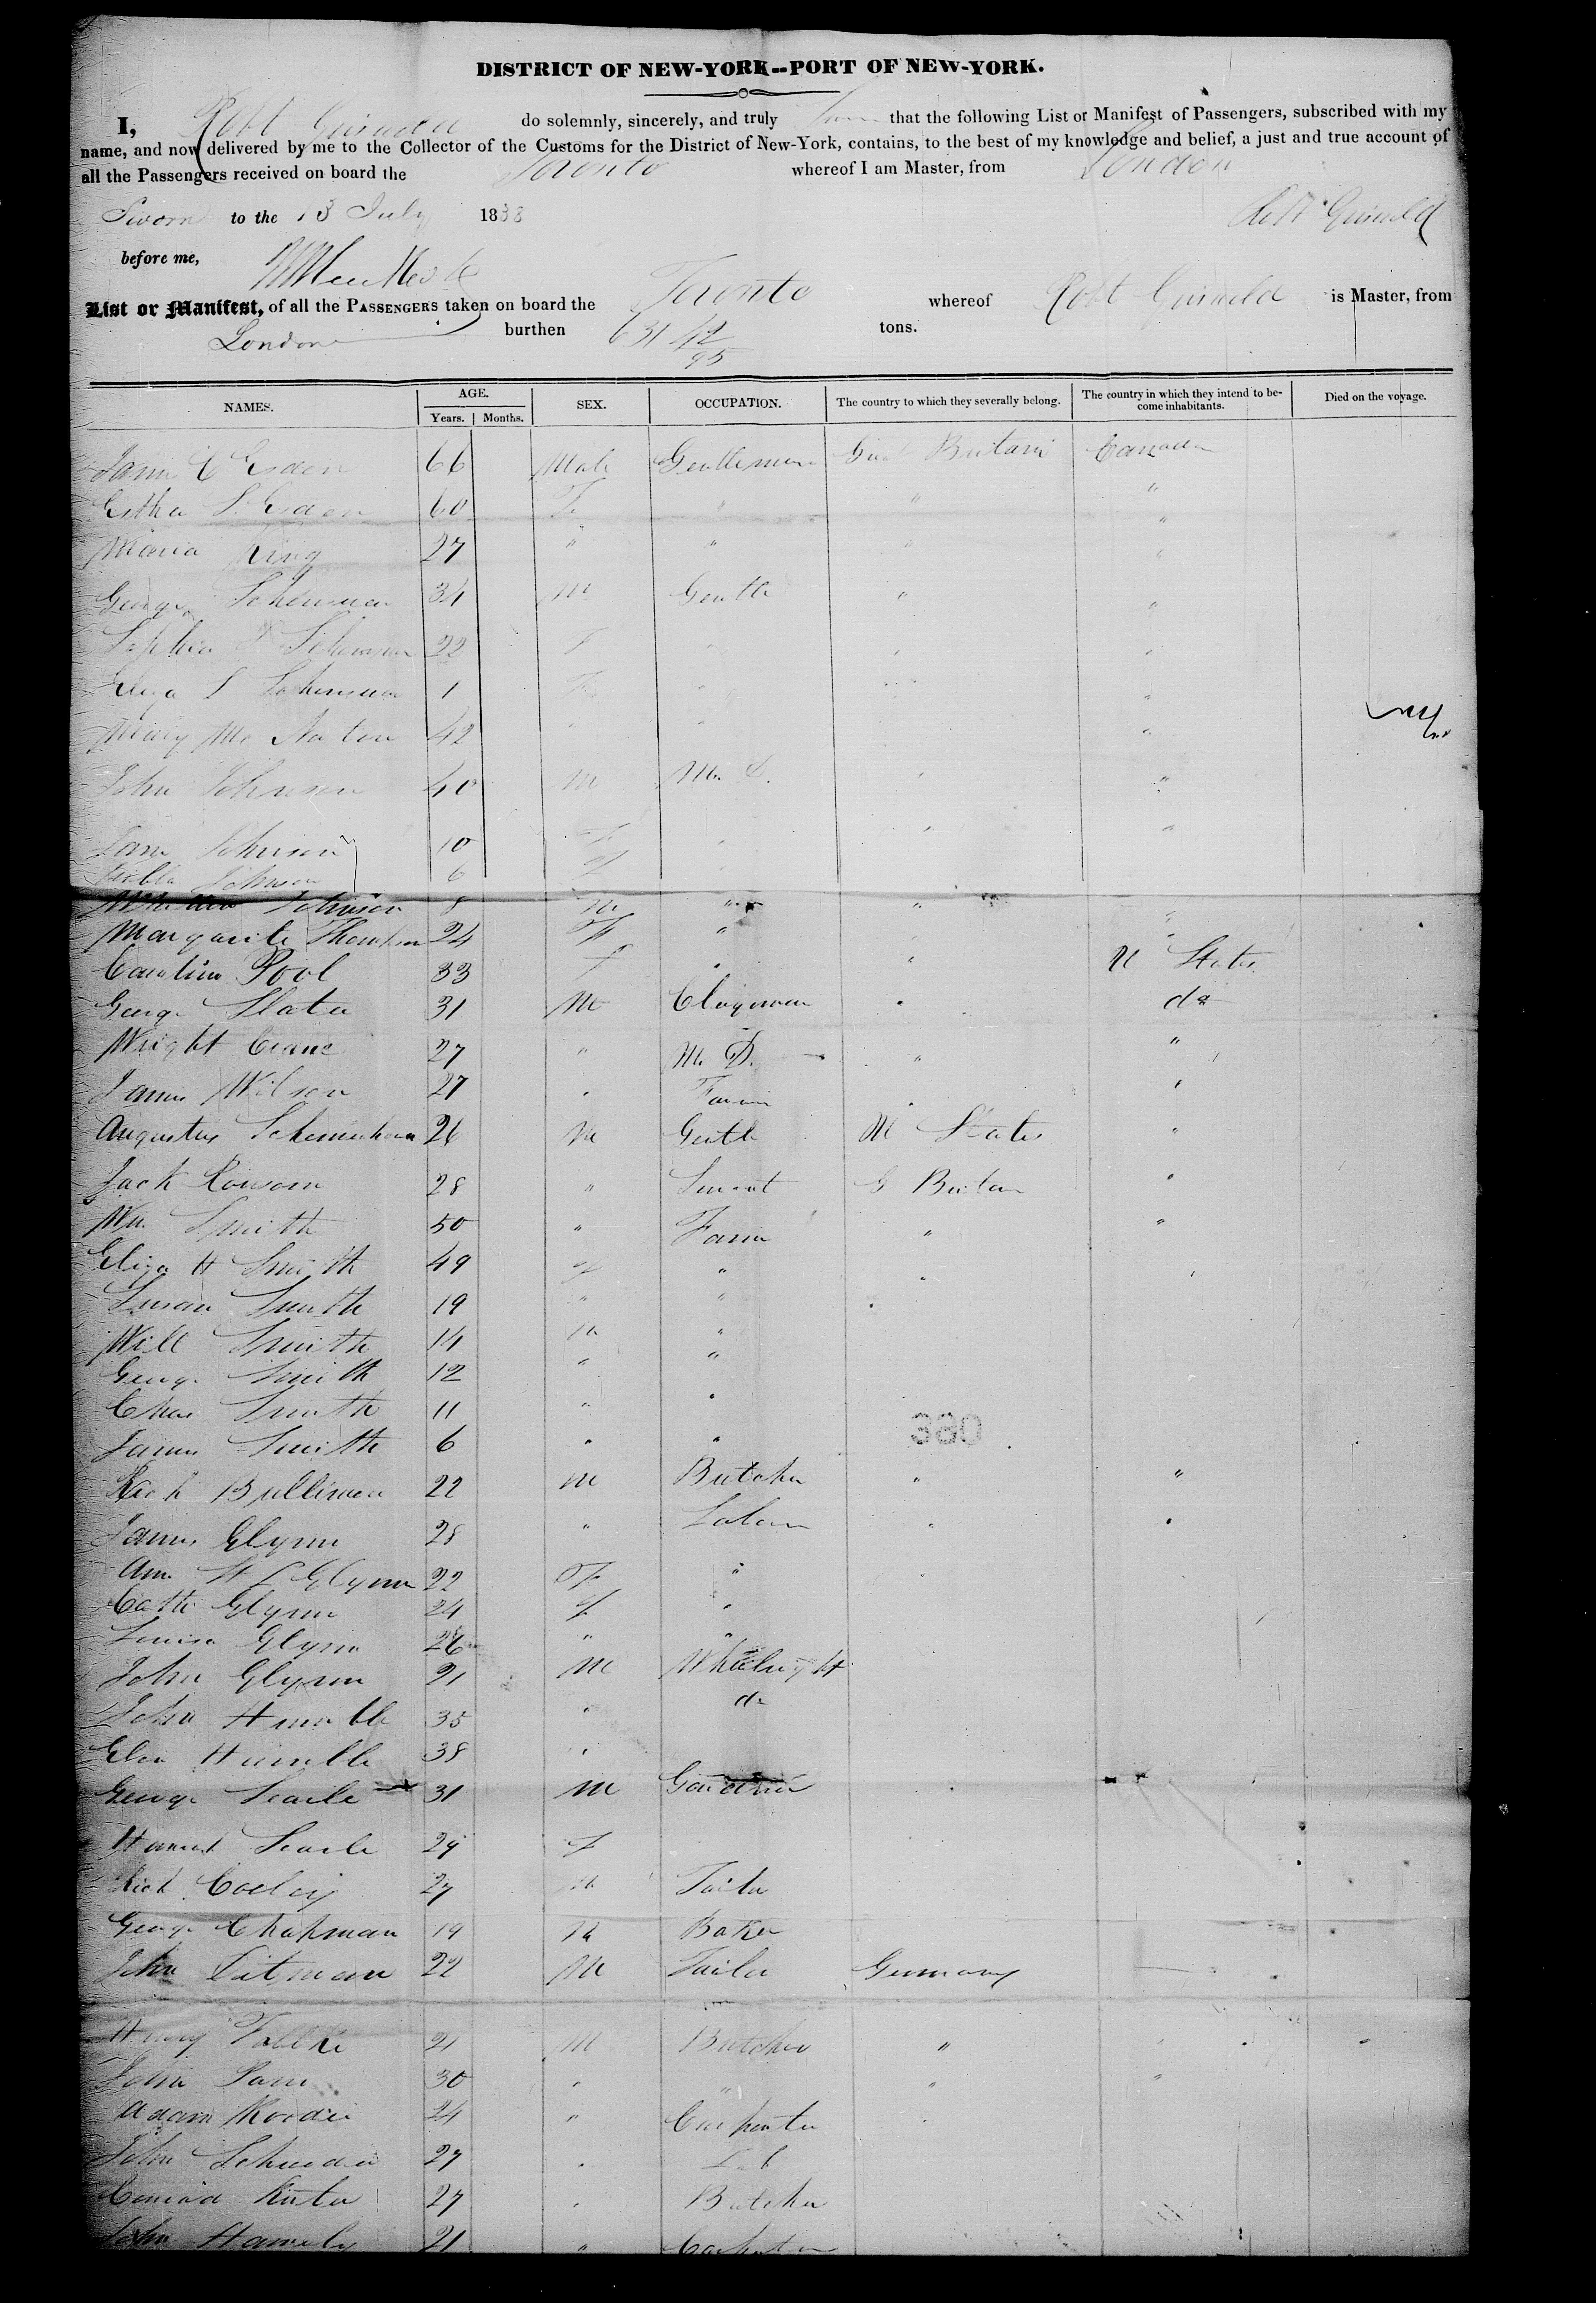 DISTRICT OF NEW-YORK--PORT OF NEW-YORK.
I, Robt Griswold do solemnly, sincerely, and truly that the following List or Manifest of Passengers, subscribed with my
name, and now delivered by me to the Collector of the Customs for the District of New-York, contains, to the best of my knowledge and belief, a just and true account of
all the Passengers received on board the Toronto whereof I am Master, from London
Sworn to the 13 July 1838 Robt Griswold
before me,
List or Manifest, of all the PASSENGERS taken on board the Toronto whereof Robt Griswold is Master, from
London burthen 631 42/95 tons.
NAMES. AGE. SEX. OCCUPATION. The country to which they severally belong. The country in which they intend to be- Died on the voyage.
Years. Months. come inhabitants.
66 Male Gentleman Great Britain Canada
60 F " " "
Maria King 27 " " " "
George 34 M Gentle " "
Sophia 22 F " " "
Eliza S 1 F " " "
Mary 42 " " "
John Johnson 40 M M. D. " "
Jane Johnson 10 F " " "
Johnson 6 f
Johnson 8 M " " "
24 F " " "
Caroline Pool 33 f " " U States
George Slater 31 M Clergyman " do
Wright Crane 27 " M. D. " "
James Wilson 27 " Farmer " "
Augustus 26 M Gentle U States "
Jack 28 " Servant G Britain "
Wm. Smith 50 " Farmer " "
Eliza H Smith 49 f " " "
Susan Smith 19 " " "
Will Smith 14 M "
George Smith 12 " "
Chas Smith 11 " "
James Smith 6 " "
360
Rich 22 M Butcher " "
James Glynn 28 " Labour " "
Ann Glynn 22 F "
Cath Glynn 24 f "
Louisa Glynn 26 " "
John Glynn 21 M Wheelright
John Humble 35 " do
Humble 38 "
George Searle 31 M Gardner
Searle 29 f
Rich 27 M Tailor
George Chapman 19 M Baker
John Ditman 22 M Tailor Germany
Henry 21 M Butcher " "
John 30 " " " "
Adam 24 " Carpenter
John 27 " Lab
Conrad 27 " Butcher
John 21 " Carpenter